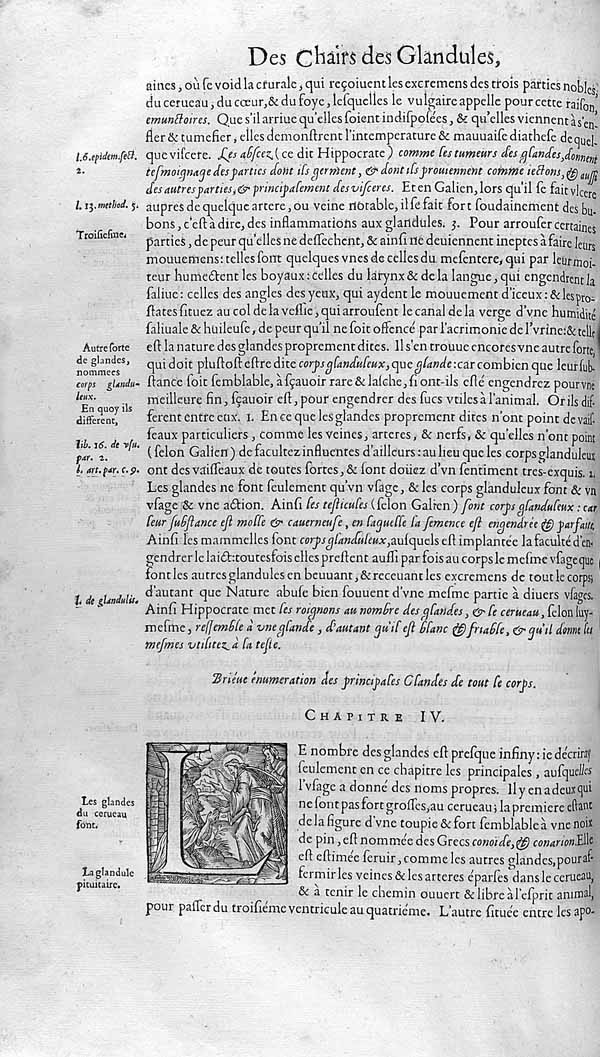 Des Chairs des Glandules,
aines, où ſe void la crurale, qui reçoiuent les excremens des trois parties nobles,
du cerueau, du cœur, & du foye, leſquelles le vulgaire appelle pour cette raiſon,
emunctoires. Que s'il arriue qu'elles ſoient indiſpoſées, & qu'elles viennent à s'en-
fler & tumefier, elles demonſtrent l'intemperature & mauuaiſe diatheſe de quel-
l. 6. epidem. ſect.
2.
que viſcere. Les abſcez (ce dit Hippocrate) comme les tumeurs des glandes, donnent
teſmoignage des parties dont ils germent, & dont ils prouiennent comme iectons, & auſſi
des autres parties, & principalement des viſceres. Et en Galien, lors qu'il ſe fait vlcere
l. 13. method. 5.
aupres de quelque artere, ou veine notable, il ſe fait fort ſoudainement des bu-
bons, c'eſt à dire, des inflammations aux glandules. 3. Pour arrouſer certaines
Troiſieſme.
parties, de peur qu'elles ne deſſechent, & ainſi ne deuiennent ineptes à faire leurs
mouuemens: telles ſont quelques vnes de celles du meſentere, qui par leur moi-
teur humectent les boyaux: celles du larynx & de la langue, qui engendrent la
ſaliue: celles des angles des yeux, qui aydent le mouuement d'iceux: & les pro-
ſtates ſituez au col de la veſſie, qui arrouſent le canal de la verge d'vne humidité
ſaliuale & huileuſe, de peur qu'il ne ſoit offencé par l'acrimonie de l'vrine: & telle
Autre ſorte
de glandes,
nommees
corps glandu-
leux.
En quoy ils
different,
eſt la nature des glandes proprement dites. Il s'en trouue encores vne autre ſorte,
qui doit pluſtoſt eſtre dite corps glanduleux, que glande: car combien que leur ſub-
ſtance ſoit ſemblable, à ſçauoir rare & laſche, ſi ont-ils eſté engendrez pour vne
meilleure fin, ſçauoir eſt, pour engendrer des ſucs vtiles à l'animal. Or ils dif-
ferent entre eux. 1. En ce que les glandes proprement dites n'ont point de vaiſ-
ſeaux particuliers, comme les veines, arteres, & nerfs, & qu'elles n'ont point
lib. 16. de vſu.
par. 2.
l. art. par. c. 9.
(ſelon Galien) de facultez influentes d'ailleurs: au lieu que les corps glanduleux
ont des vaiſſeaux de toutes ſortes, & ſont doüez d'vn ſentiment tres-exquis. 2.
Les glandes ne ſont ſeulement qu'vn vſage, & les corps glanduleux ſont & vn
vſage & vne action. Ainſi les teſticules (ſelon Galien) ſont corps glanduleux: car
leur ſubſtance eſt molle & cauerneuſe, en laquelle la ſemence eſt engendrée & parfaite.
Ainſi les mammelles ſont corps glanduleux, auſquels eſt implantée la faculté d'en-
gendrer le laict: toutesfois elles preſtent auſſi par fois au corps le meſme vſage que
font les autres glandules en beuuant, & receuant les excremens de tout le corps,
l. de glandulis.
d'autant que Nature abuſe bien ſouuent d'vne meſme partie à diuers vſages.
Ainſi Hippocrate met les roignons au nombre des glandes, & le cerueau, ſelon luy-
meſme, reſſemble à vne glande, d'autant qu'il eſt blanc & friable, & qu'il donne les
meſmes vtilitez à la teſte.
Briéue énumeration des principales Glandes de tout le corps.
CHAPITRE IV.
LE nombre des glandes eſt preſque infiny: ie décriray
ſeulement en ce chapitre les principales, auſquelles
l'vſage a donné des noms propres. Il y en a deux qui
Les glandes
du cerueau
ſont.
ne ſont pas fort groſſes, au cerueau; la premiere eſtant
de la figure d'vne toupie & fort ſemblable à vne noix
de pin, eſt nommée des Grecs conoide, & conarion. Elle
eſt eſtimée ſeruir, comme les autres glandes, pour af-
La glandule
pituitaire.
fermir les veines & les arteres éparſes dans le cerueau,
& à tenir le chemin ouuert & libre à l'eſprit animal,
pour paſſer du troiſiéme ventricule au quatriéme. L'autre ſituée entre les apo-